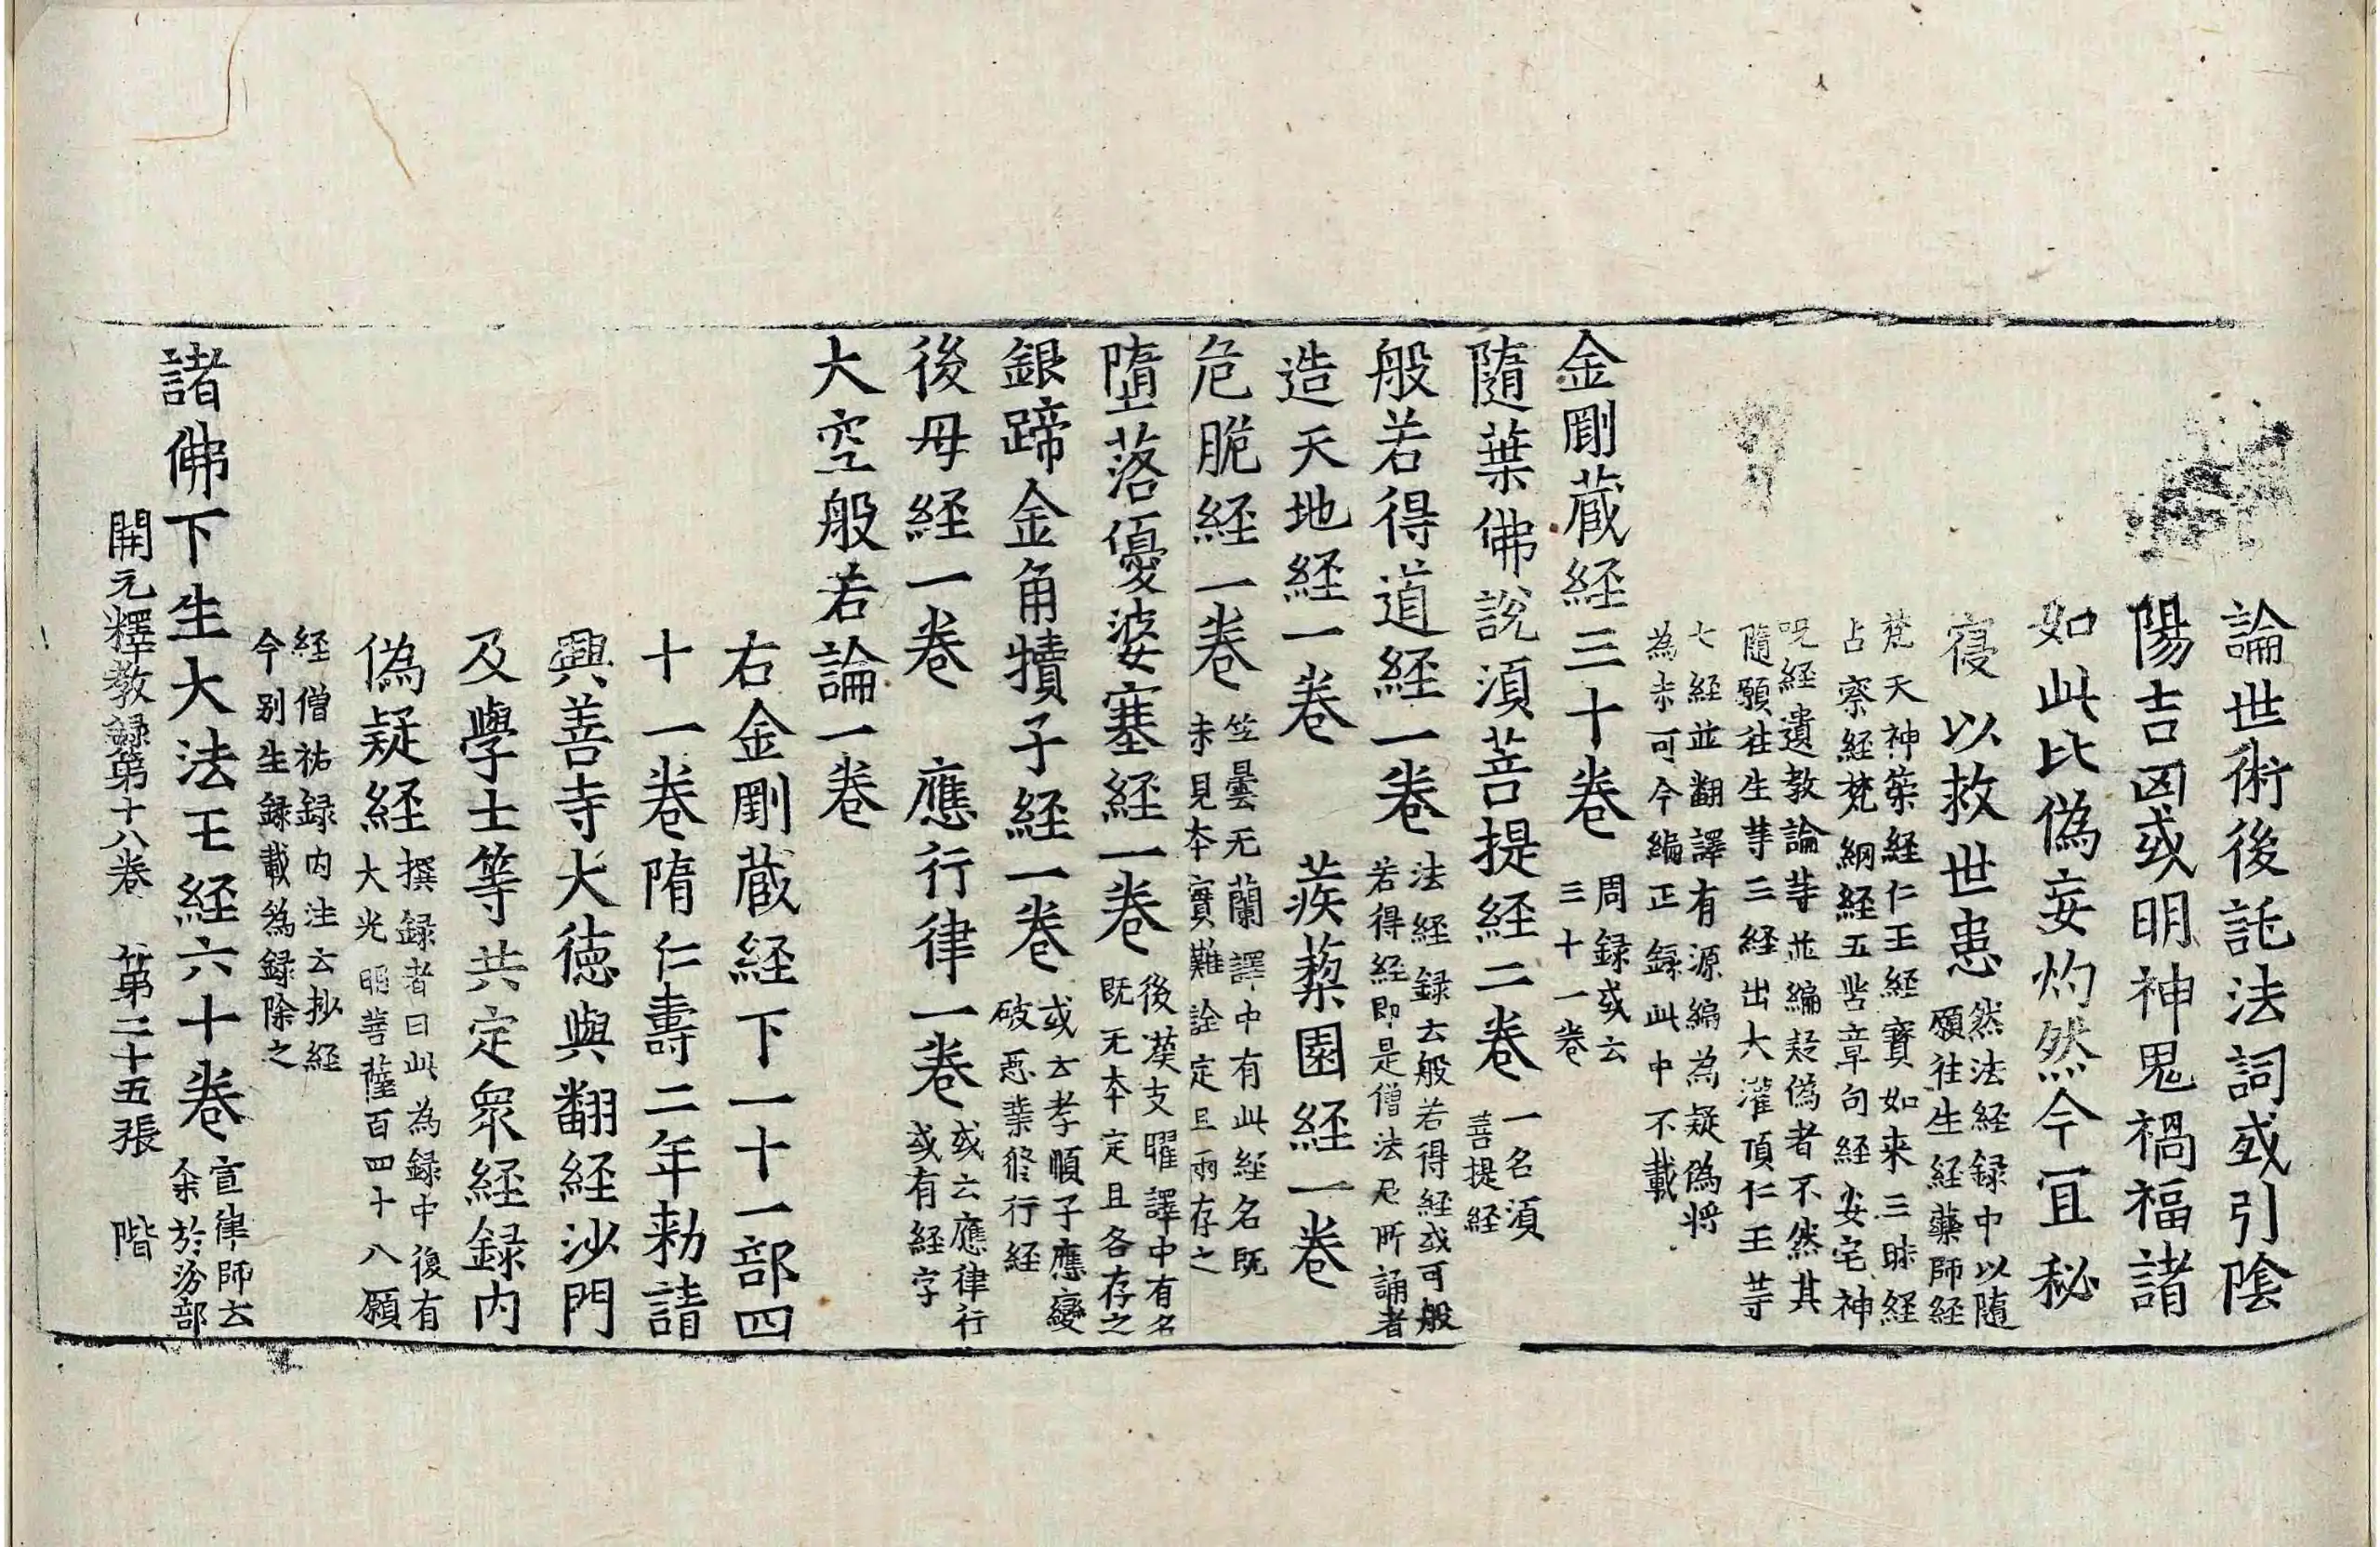 論世術後託法詞或引陰
陽吉凶或明神鬼禍福諸
如此比偽妄灼然今宜秘
寑以救世患然法経録中以隨
願往生経藥師経
梵天神䇿経仁王経寳如来三昧経
占察経梵網経五㘹章句経安宅神
呪経遺教論䓁並編疑偽者不然其
隨願往生䓁三経出大灌頂仁王䓁
七経並翻譯有源編為疑偽将
為未可今編正録此中不載
金剛蔵経三十卷周録或云
三十一卷
隨葉佛説湏菩提経二卷一名湏
菩提経
般若得道経一卷法経録云般若得経或可般
若得経即是僧法尼所誦者
造天地経一卷 蒺䔧園経一卷
危脆経一卷竺曇无蘭譯中有此経名既
未見本實難詮定且兩存之
墮落優婆塞経一卷後漢支曜譯中有名
既无本定且各存之
銀蹄金角犢子経一卷或云孝順子應變
破惡業修行経
後母経一卷 應行律一卷或云應律行
或有経字
大空般若論一卷
右金剛蔵経下一十一部四
十一卷隋仁壽二年勑請
興善寺大徳與翻経沙門
及學士等共定衆経録内
偽疑経撰録者曰此為録中後有
大光明菩薩百四十八願
経僧祐録内注云抄経
今别生録載為録除之
諸佛下生大法王経六十卷宣律師云
余於汾部
開元釋教録第十八卷 第二十五張 階